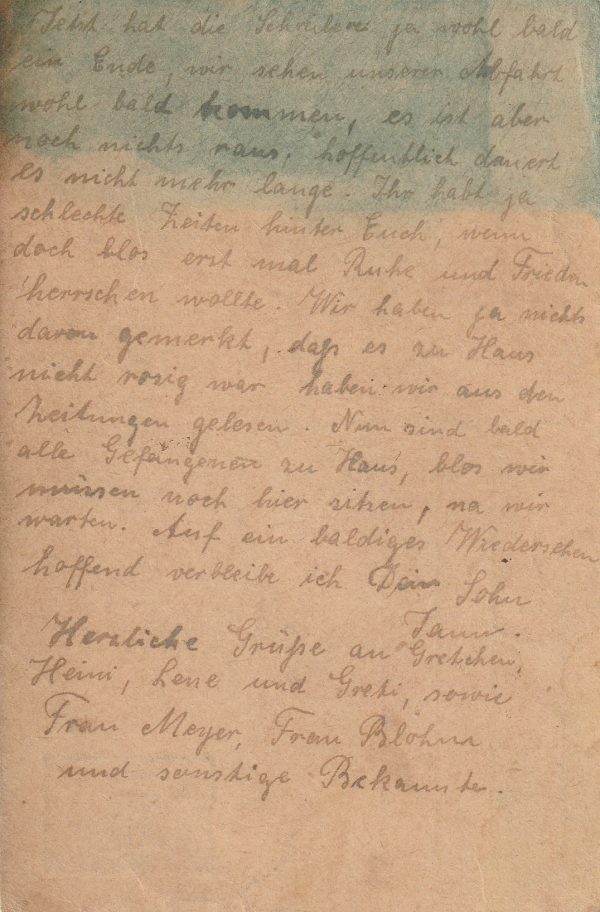 Jetzt hat die Schreiberei ja wohl bald
ein Ende, wir sehen unserer Abfahrt
wohl bald kommen, es ist aber
noch nichts raus, hoffentlich dauert
es nicht mehr lange. Ihr habt ja
schlechte Zeiten hinter Euch, wenn
doch blos erst mal Ruhe und Frieden
herrschen wollte. Wir haben ja nichts
davon gemerkt, daß es zu Haus
nicht rosig war haben wir aus den
Zeitungen gelesen. Nun sind bald
alle Gefangenen zu Haus, blos wir
müssen noch hier sitzen, na wir
warten. Auf ein baldiges Wiedersehen
hoffend verbleibe ich Dein Sohn
Herzliche Grüße an Gretchen,
Heini, Lene und Greti, sowie
Frau Meyer, Frau Blohm
und sonstige Bekannte.